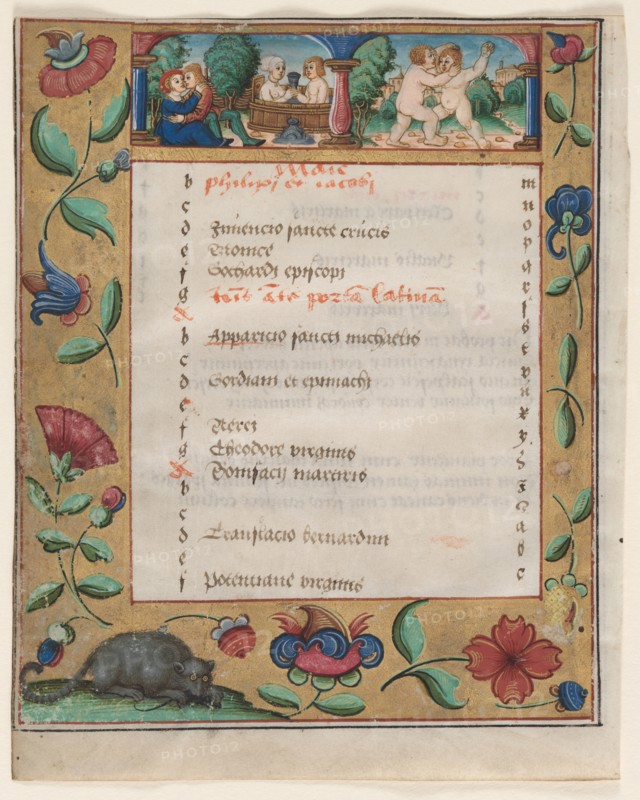 Maie
b philipi et iacobi m
c n
d Inuencio sancte crucis o
e Monice p
f Gothardi episcopi q
g Ioh ante portam latinam r
A s
b Apparicio sancti michaelis t
c v
d Gordiani et epimachi u
e x
f Nerei y
g Theodore virginis
A Bonifacii martiris
b
c
d Translacio bernardini a
e b
f Potenciane virginis c
PHOTO12